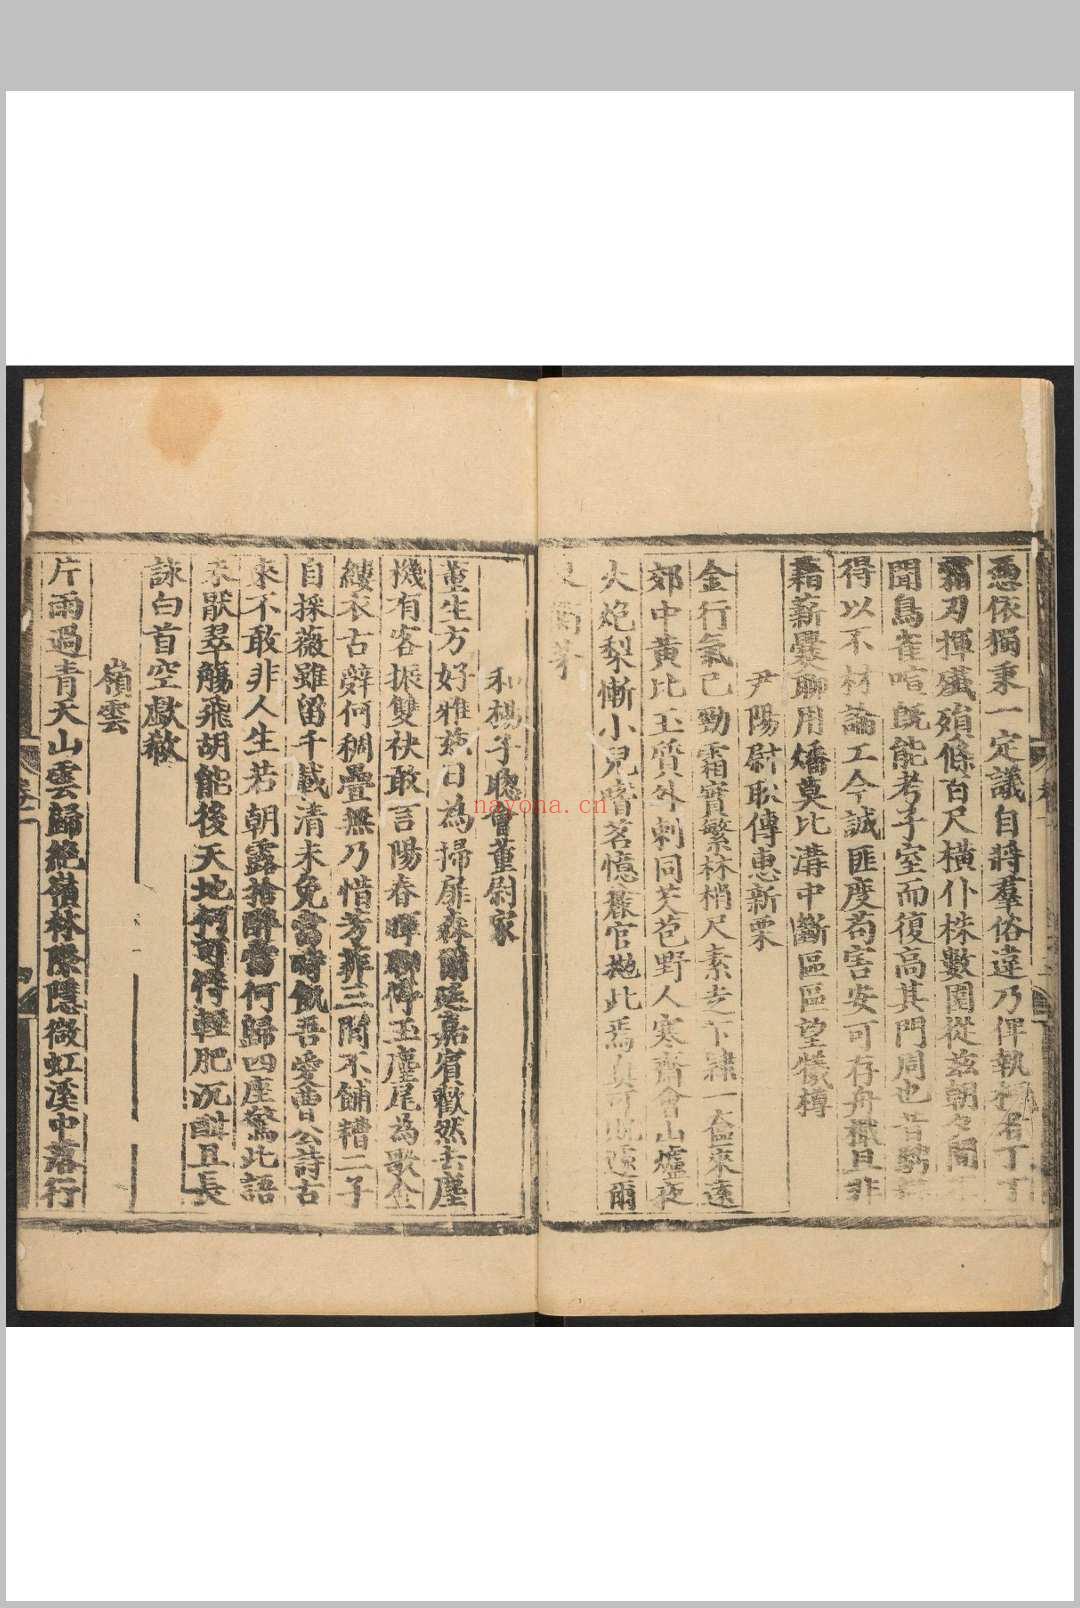 憑依獨秉一定議自將羣俗違乃俾執柯者丁丁
霜刃揮纖殞條百尺橫仆株數圍從茲朝夕間
聞鳥雀喧旣能考子室而復高其門周也昔
得以不材論工今誠匪度苟害安可存舟檝且非
藉薪爨聊用燔莫比溝中斷區區望犧樽
尹陽尉耿傳惠新栗
金行氣已勁霜實繁林梢尺素走下隸一奩來遠
郊中黃比玉質外刺同芡苞野人寒齋會山爐夜
火炮梨慚小兒嗜茗憶麤官拋此焉真可貺遠爾
和楊子聰會董尉家
董生方好雅茲日為掃扉森爾延嘉賓歡然去塵
機有客振雙袂敢言陽春暉聊停玉麈尾為歌金
縷衣古辭何稠疊無乃惜芳菲三閭不餔糟二子
自採薇雖留千載清未免當時飢吾愛曹公詩古
來不敢非人生若朝露捨醉當何歸四座驚此語
未猒翠觴飛胡能後天地何可恃輕肥沉酣且長
詠白首空歔欷
嶺雲
片雨過青天山雲歸絶嶺林際隱微虹溪中落行
卷二
nayona.cn